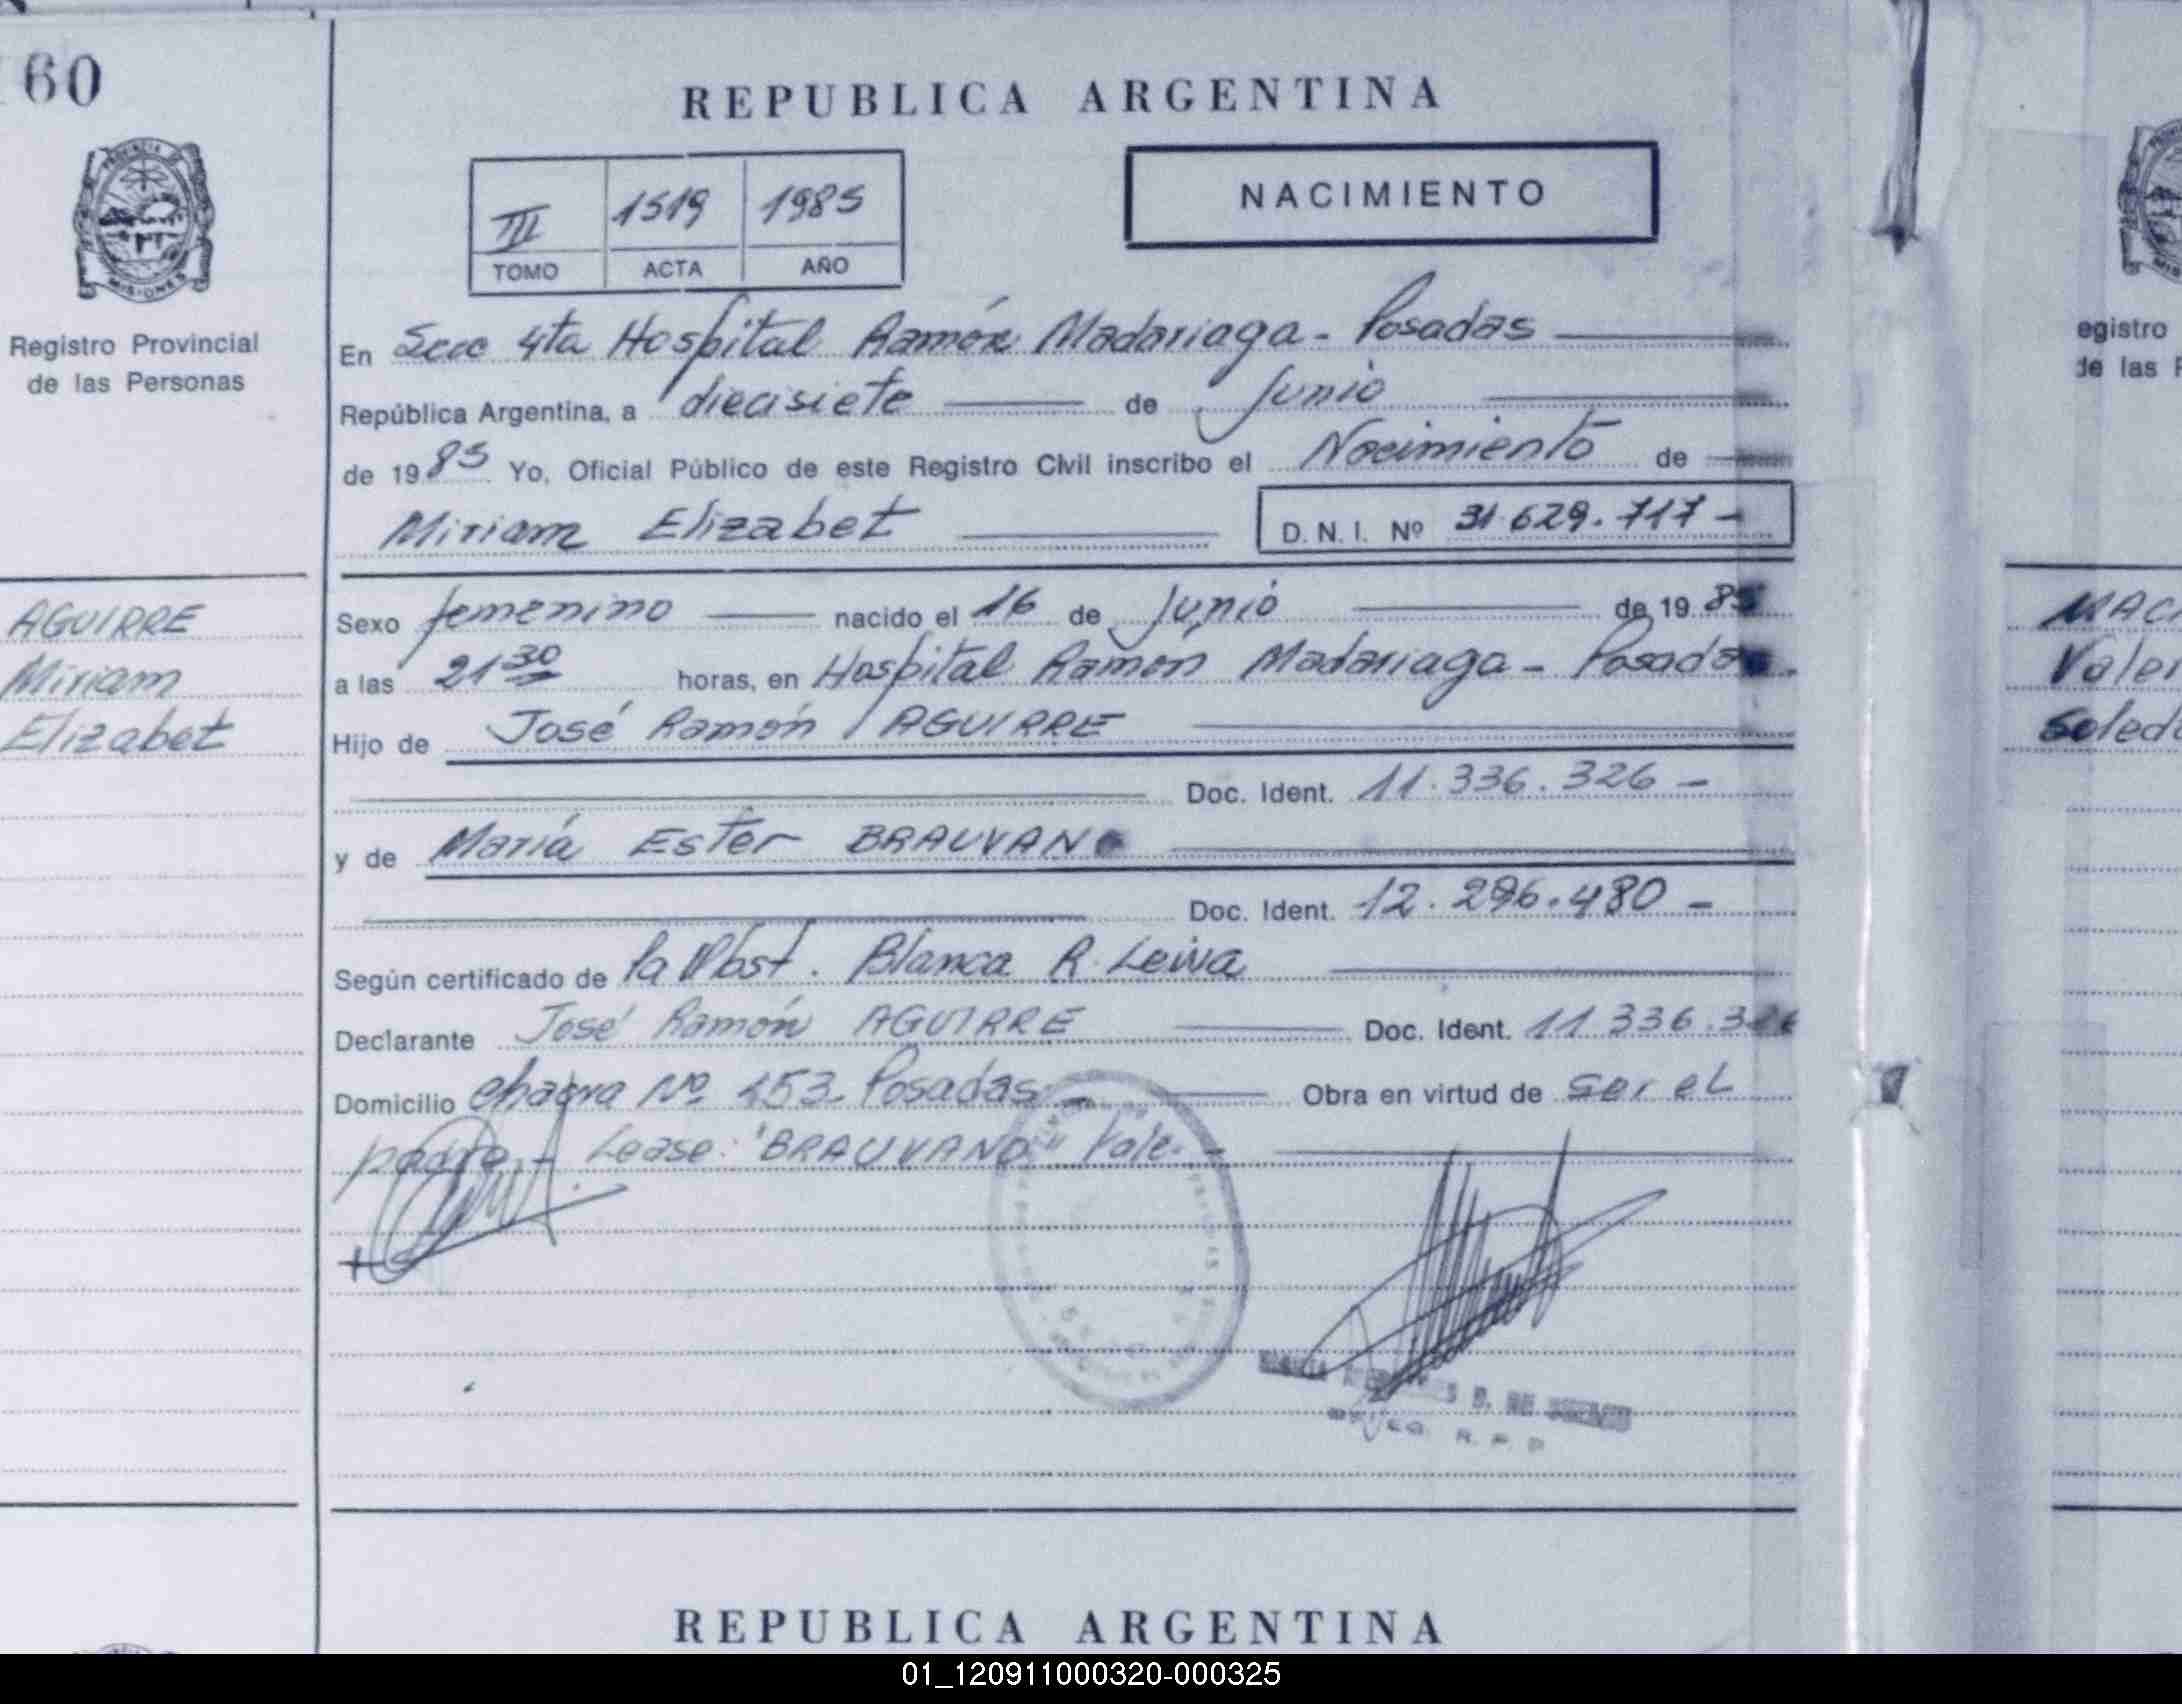 60
REPUBLICA ARGENTINA
III 1519 1985
TOMO ACTA AÑO
NACIMIENTO
PROVINCIA DE
MISIONES
Registro Provincial
de las Personas
En Secc 4ta Hospital Ramón Madariaga - Posadas
República Argentina, a diecisiete de Junio
de 1985 Yo, Oficial Público de este Registro Civil inscribo el Nacimiento de
Miriam Elizabet D.N.I. Nº 31.629.717-
AGUIRRE
Miriam
Elizabet
Sexo femenino nacido el 16 de Junio de 1985
a las 21 30 horas, en Hospital Ramón Madariaga - Posadas.
Hijo de José Ramón AGUIRRE
Doc. Ident. 11.336.326-
y de María Ester BRAUVANO
Doc. Ident. 12.296.480-
Según certificado de la Obst. Blanca R. Leiva
Declarante José Ramón AGUIRRE Doc. Ident. 11.336.326
Domicilio chacra Nº 153. Posadas- Obra en virtud de ser el
padre.- Lease: "BRAUVANO" Vale.-
R. P. P
egistro
de las P
MAC
Valer
Soleda
REPUBLICA ARGENTINA
01_120911000320-000325